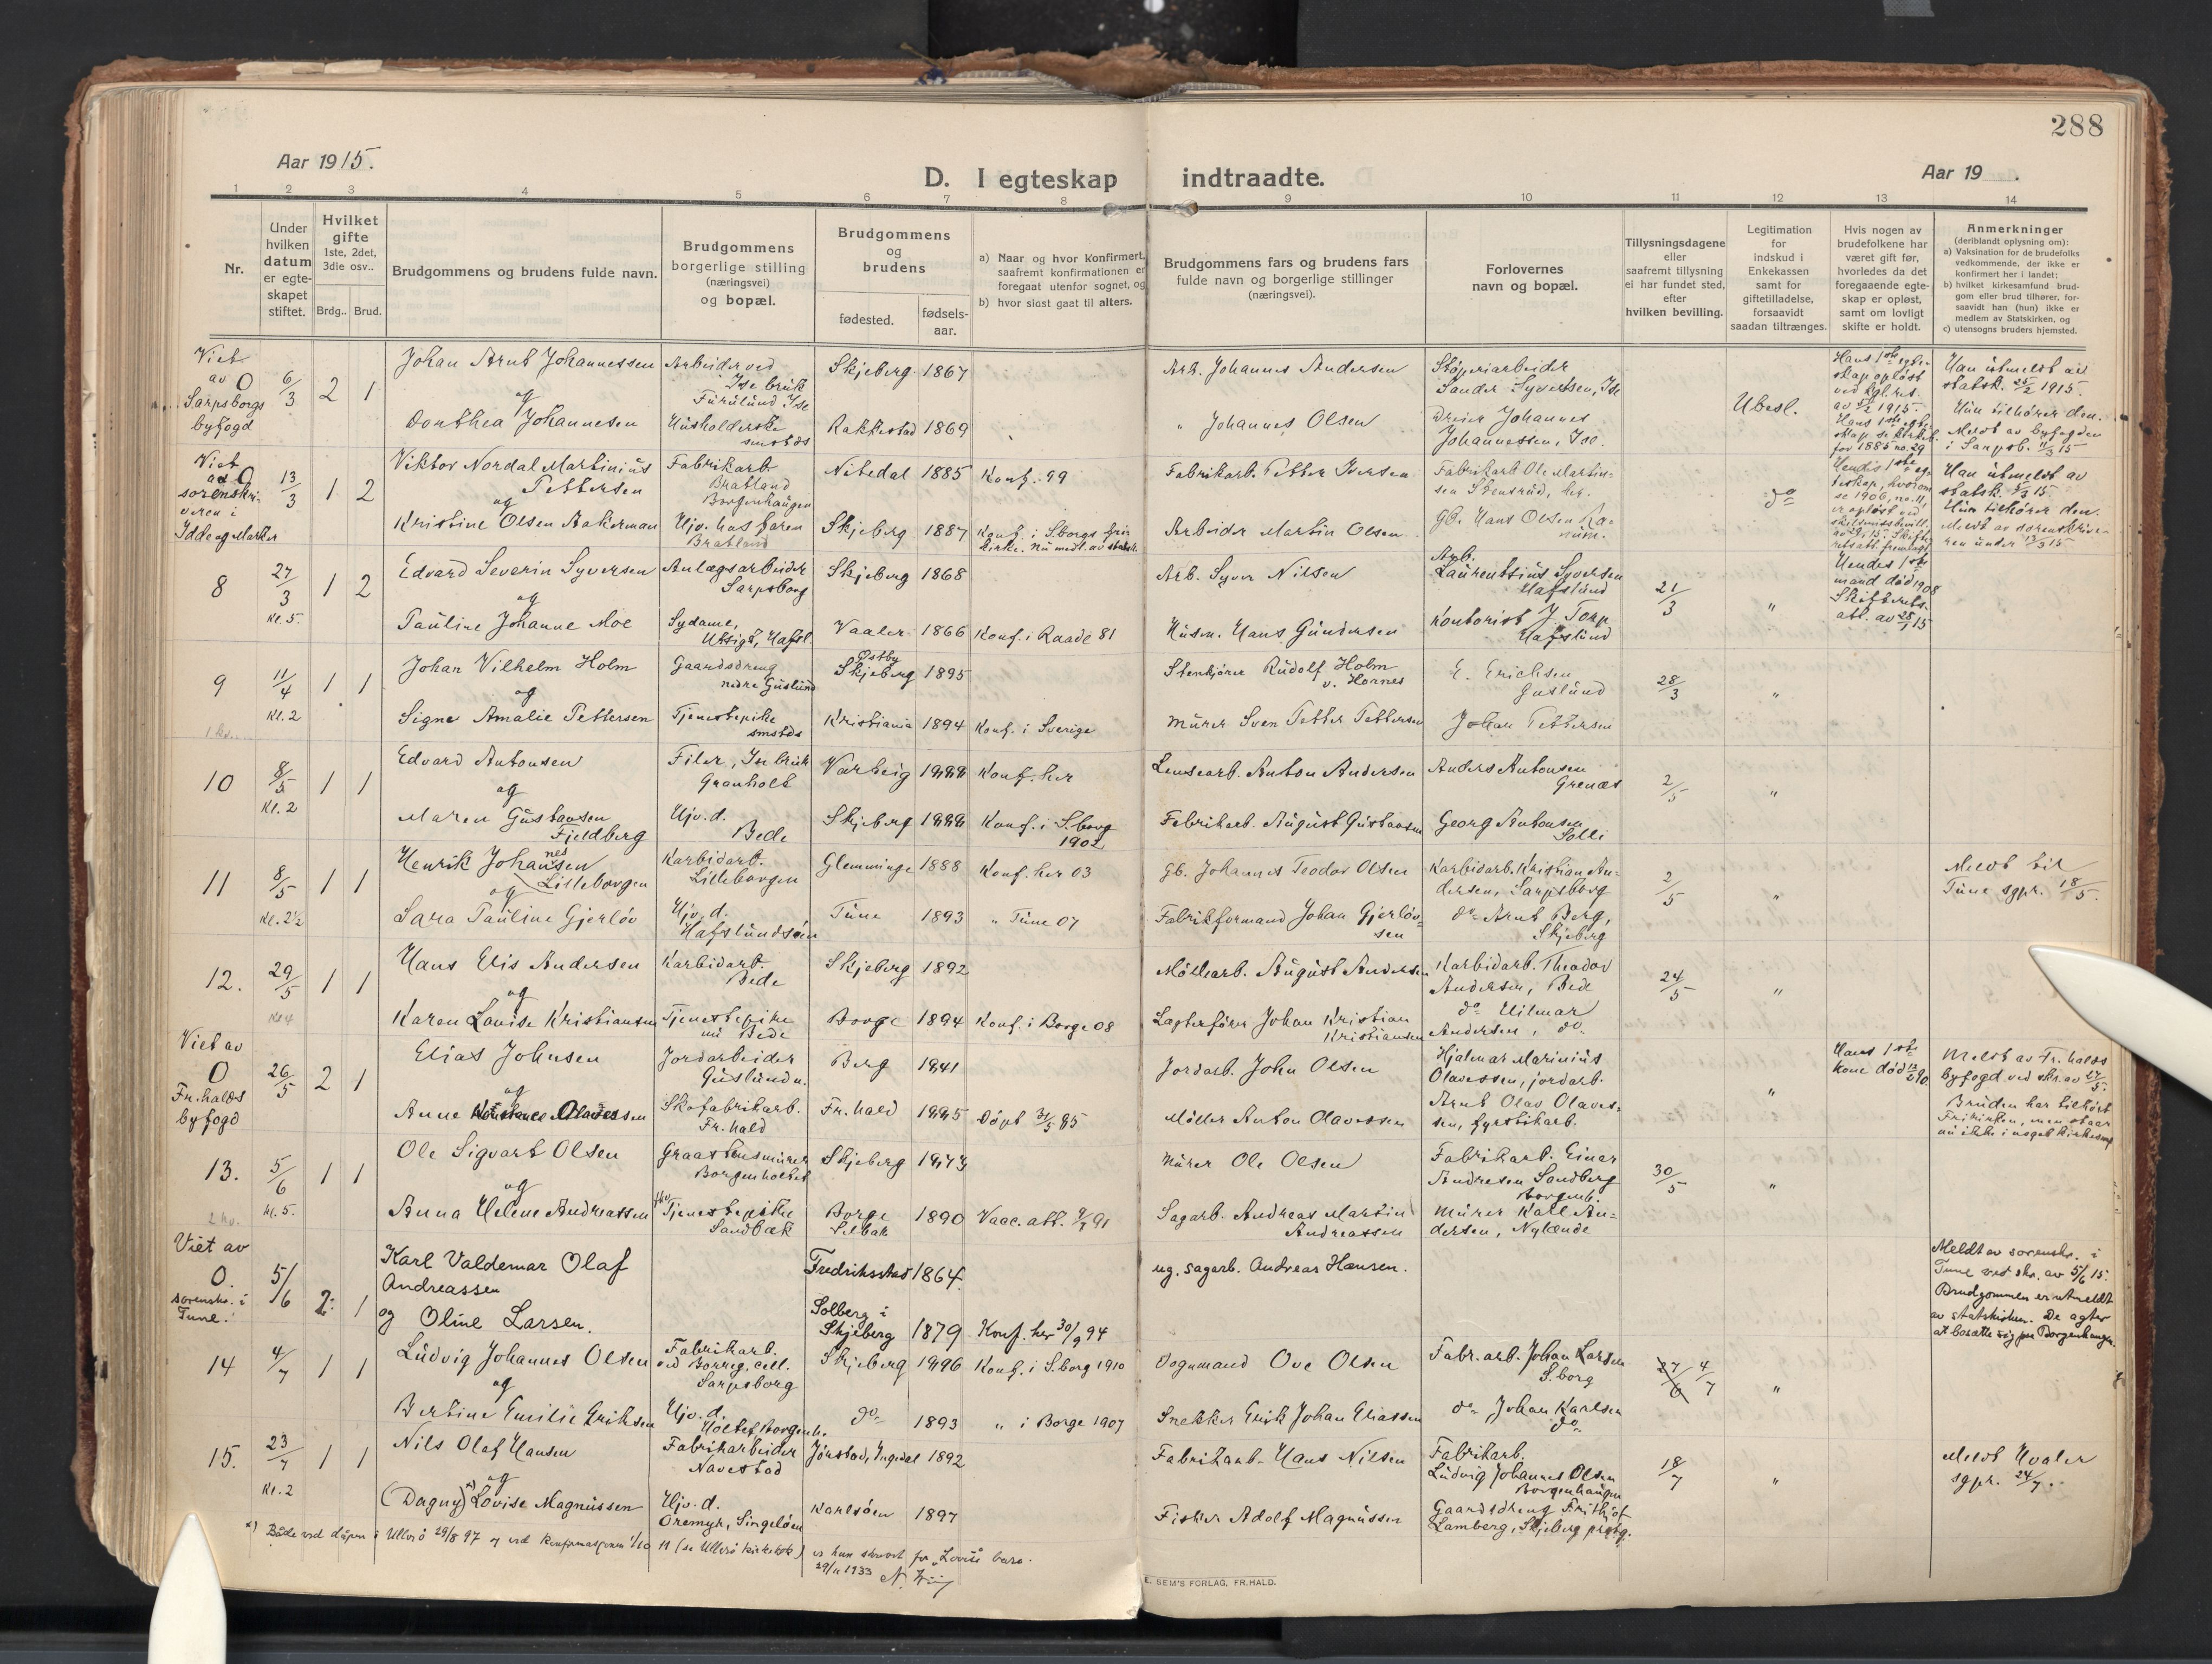 288
Aar 1915.
D. I egteskap indtraadte.
Aar 19 .
1 2 3 4 5 6 7 8 9 10 11 12 13 14
Nr.
Under hvilken datum er egte-skapet stiftet.
Hvilket gifte 1ste, 2det, 3die osv..
Brdg.. Brud.
Brudgommens og brudens fulde navn.
Brudgommens borgerlige stilling (næringsvei) og bopæl.
Brudgommens og brudens
fødested. fødsels-aar.
a) Naar og hvor Konfirmert, saafremt konfirmationen er foregaat utenfor sognet, og
b) hvor sidst gaat til alters.
Brudgommens fars og brudens fars fulde navn og borgerlige stillinger (næringsvei).
Forlovernes navn og bopæl.
Tillysningsdagene eller saafremt tillysning ei har fundet sted, efter hvilken bevilling.
Legitimation for indskud i Enkekassen samt for giftetilladelse, forsaavidt saadan tiltrænges.
Hvis nogen av brudefolkene har været gift før, hvorledes da det foregaaende egte-skap er opløst, samt om lovligt skifte er holdt.
Anmerkninger (deriblandt oplysning om):
a) Vaksination de brudefolks vedkommende, der ikke er konfirmert her i landet;
b) hvilket kirkesamfund brud-gom eller brud tilhører, for-saavidt han (hun) ikke er medlem av Statskirken, og
c) utensogns bruders hjemsted.
Viet av O Sarpsborgs byfogd
6/3 2 1
Johan Arnt Johannessen
Arbeider ved Ise bruk Furulund Ise
Skjeberg 1867
Arb. Johannes Andersen
Støperiarbeider Sander Syvertsen, Ise
Ubesl.
Hans 1ste egte-skap opløst ved kgl. res.
Han utmeldt av statsk. 25/2 1915.
og
Dorthea Johannesen
Husholderske smstds
Rakkestad 1869
" Johannes Olsen
Dreier Johannes Johannessen, Ise.
Hun tilhører den.
Meldt av byfogden i Sarpsb. 11/3 15
Viet av O sorenskri-veren i Idde og Marker
13/3 1 2
Viktor Nordal Martinius Pettersen
Fabrikarb Bratland Borgenhaugen
Nitedal 1885 Konf. 99
Fabrikarb. Petter Iversen
Fabrikarb Ole Martin-sen Stensrud, her.
do
Han utmeldt av statsk. 5/3 15.
og
Kristine Olsen Aakerman
Hjv. hos faren Bratland
Skjeberg 1887 Konf. i S.borgs fri-kirke. Nu medl. av statsk.
Arbeider Martin Olsen
Gb. Hans Olsen
Hun tilhører den.
Meldt av sorenskrive-ren under 13/3 15
8 27/3 1 2
Edvard Severin Syversen
Anlægsarbeider Sarpsborg
Skjeberg 1868
Arb. Syver Nilsen
Arb. Laurentsius Syversen Hafslund
21/3 "
Hendes 1ste mand død 1908
Skifterets att. av 28/1 15
Kl. 5.
og
Pauline Johanne Moe
Sydame, Utsigt, Hafsl.
Vaaler 1866 Konf. i Raade 81
Husm. Hans Gundersen
Kontorist J. Torp Hafslund
9 11/4 1 1
Johan Vilhelm Holm
Gaardsdreng nedre Guslund
Østby Skjeberg 1895
Stenkjører Rudolf Holm v. Hornes
E. Erichsen Guslund
28/3 "
Kl. 2
og
Signe Amalie Pettersen
Tjenestepike smstds
Kristiania 1894 Konf. i Sverige
Murer Sven Petter Pettersen
Johan Pettersen
10 8/5 1 1
Edvard Antonsen
Filer, Ise bruk Granholt
Varteig 1888 Konf. her
Lensearb. Anton Andersen
Anders Antonsen Grenæs
2/5 "
Kl. 2
og
Maren Gustavsen Fjeldberg
Hjv. d. Bede
Skjeberg 1888 Konf. i S.borg 1902
Fabrikarb. August Gustavsen
Georg Antonsen Solli
11 8/5 1 1
Henrik Johannessen Lilleborgen
Karbidarb. Lilleborgen
Glemminge 1888 Konf. her 03
Gb. Johannes Teodor Olsen
Karbidarb. Kristian An-dersen, Sarpsborg
2/5 "
Meldt til Tune sgpr. 18/5.
Kl. 2½
og
Sara Pauline Gjerløv
Hjv. d. Hafslundsøen
Tune 1893 " Tune 07
Fabrikformand Johan Gjerløv-sen
do Arnt Berg, Skjeberg
12. 29/5 1 1
Hans Elis Andersen
Karbidarb. Bede
Skjeberg 1892
Møllearb. August Andersen
Karbidarb. Theodor Andersen, Bede
24/5 "
Kl 4
og
Karen Lovise Kristiansen
Tjenestepike nu Bede
Borge 1894 Konf. i Borge 08
Lagterfører Johan Kristian Kristiansen
do Hilmar Andersen, do.
Viet av O Fr.halds byfogd
26/5 2 1
Elias Johnsen
Jordarbeider Guslund n.
Berg 1841
Jordarb. John Olsen
Hjalmar Marinius Olavessen, jordarb.
"
Hans 1ste kone død
Meldt av Fr.halds byfogd ved skr. av 27/5.
og
Anne Olavessen
Skofabrikarb. Fr.hald
Fr.hald 1885 Døpt 31/5 85
Møller Anton Olavessen
Arnt Olav Olaves-sen, fyrstikarb.
Bruden har tilhørt Frikirken, men staar nu ikke i noget kirkesamf
13. 5/6 1 1
Ole Sigvart Olsen
Graastensmurer Borgenholtet
Skjeberg 1873
Murer Ole Olsen
Fabrikarb. Einar Andresen Sandberg Borgenh.
30/5 "
Kl. 5.
og
Anna Helene Andreassen
Tjenestepike Sandbæk
Borge Selbak 1890 Vacc. att. 91
Sagarb. Andreas Martin Andreassen
Murer Karl An-dersen, Nylænde
Viet av O. sorenskr. i Tune.
5/6 2. 1
Karl Valdemar Olaf Andreassen
Fredriksstad 1864.
ug. sagarb. Andreas Hansen.
Meldt av sorenskr. i Tune ved skr. av 5/6 15.
Brudgommen er utmeldt av statskirken. De agter at bosætte sig paa Borgenhaugen.
og Oline Larsen.
Solberg i Skjeberg 1879 Konf. her 30/9 94
14 4/7 1 1
Ludvig Johannes Olsen
Fabrikarb. ved Borreg. cell. Sarpsborg
Skjeberg 1896 Konf. i S.borg 1910
Dognmand Ove Olsen
Fabr. arb. Johan Larsen S.borg
27/6 4/7 "
og
Bertine Emilie Eriksen
Hjv. d. Holtet, Borgenh.
do 1893 " i Borge 1907
Snekker Erik Johan Eliassen
do Johan Karlsen do
15. 23/7 1 1
Nils Olaf Hansen
Fabrikarbeider Navestad
Jørstad, Ingedal 1892
Fabrikarb. Hans Nilsen
Fabrikarb. Ludvig Johannes Olsen Borgenhaugen
18/7 "
Meldt Hvaler sgpr. 24/7.
Kl. 2
og
(Dagny) x) Lovise Magnussen
Hjv. d. Oremyr, Singeløen
Karlsøen 1897
Fisker Adolf Magnussen
Gaardsdreng Frithjof Lamberg, Skjeberg prstg.
x) Både ved dåpen i Ullerø 29/8 97 og ved konfirmasjonen 1/10 11 (se Ullerø kirkebok) er hun skrevet for "Lovise" bare.
29/11 1933
E. SEM'S FORLAG, FR.HALD.